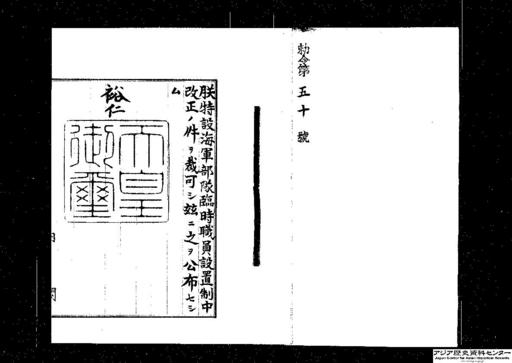 勅令第五十號
朕特設海軍部隊臨時職員設置制中
改正ノ件ヲ裁可シ茲ニ之ヲ公布セシ
ム
裕仁
天皇
御璽
アジア歴史資料センター
Japan Center for Asian Historical Records